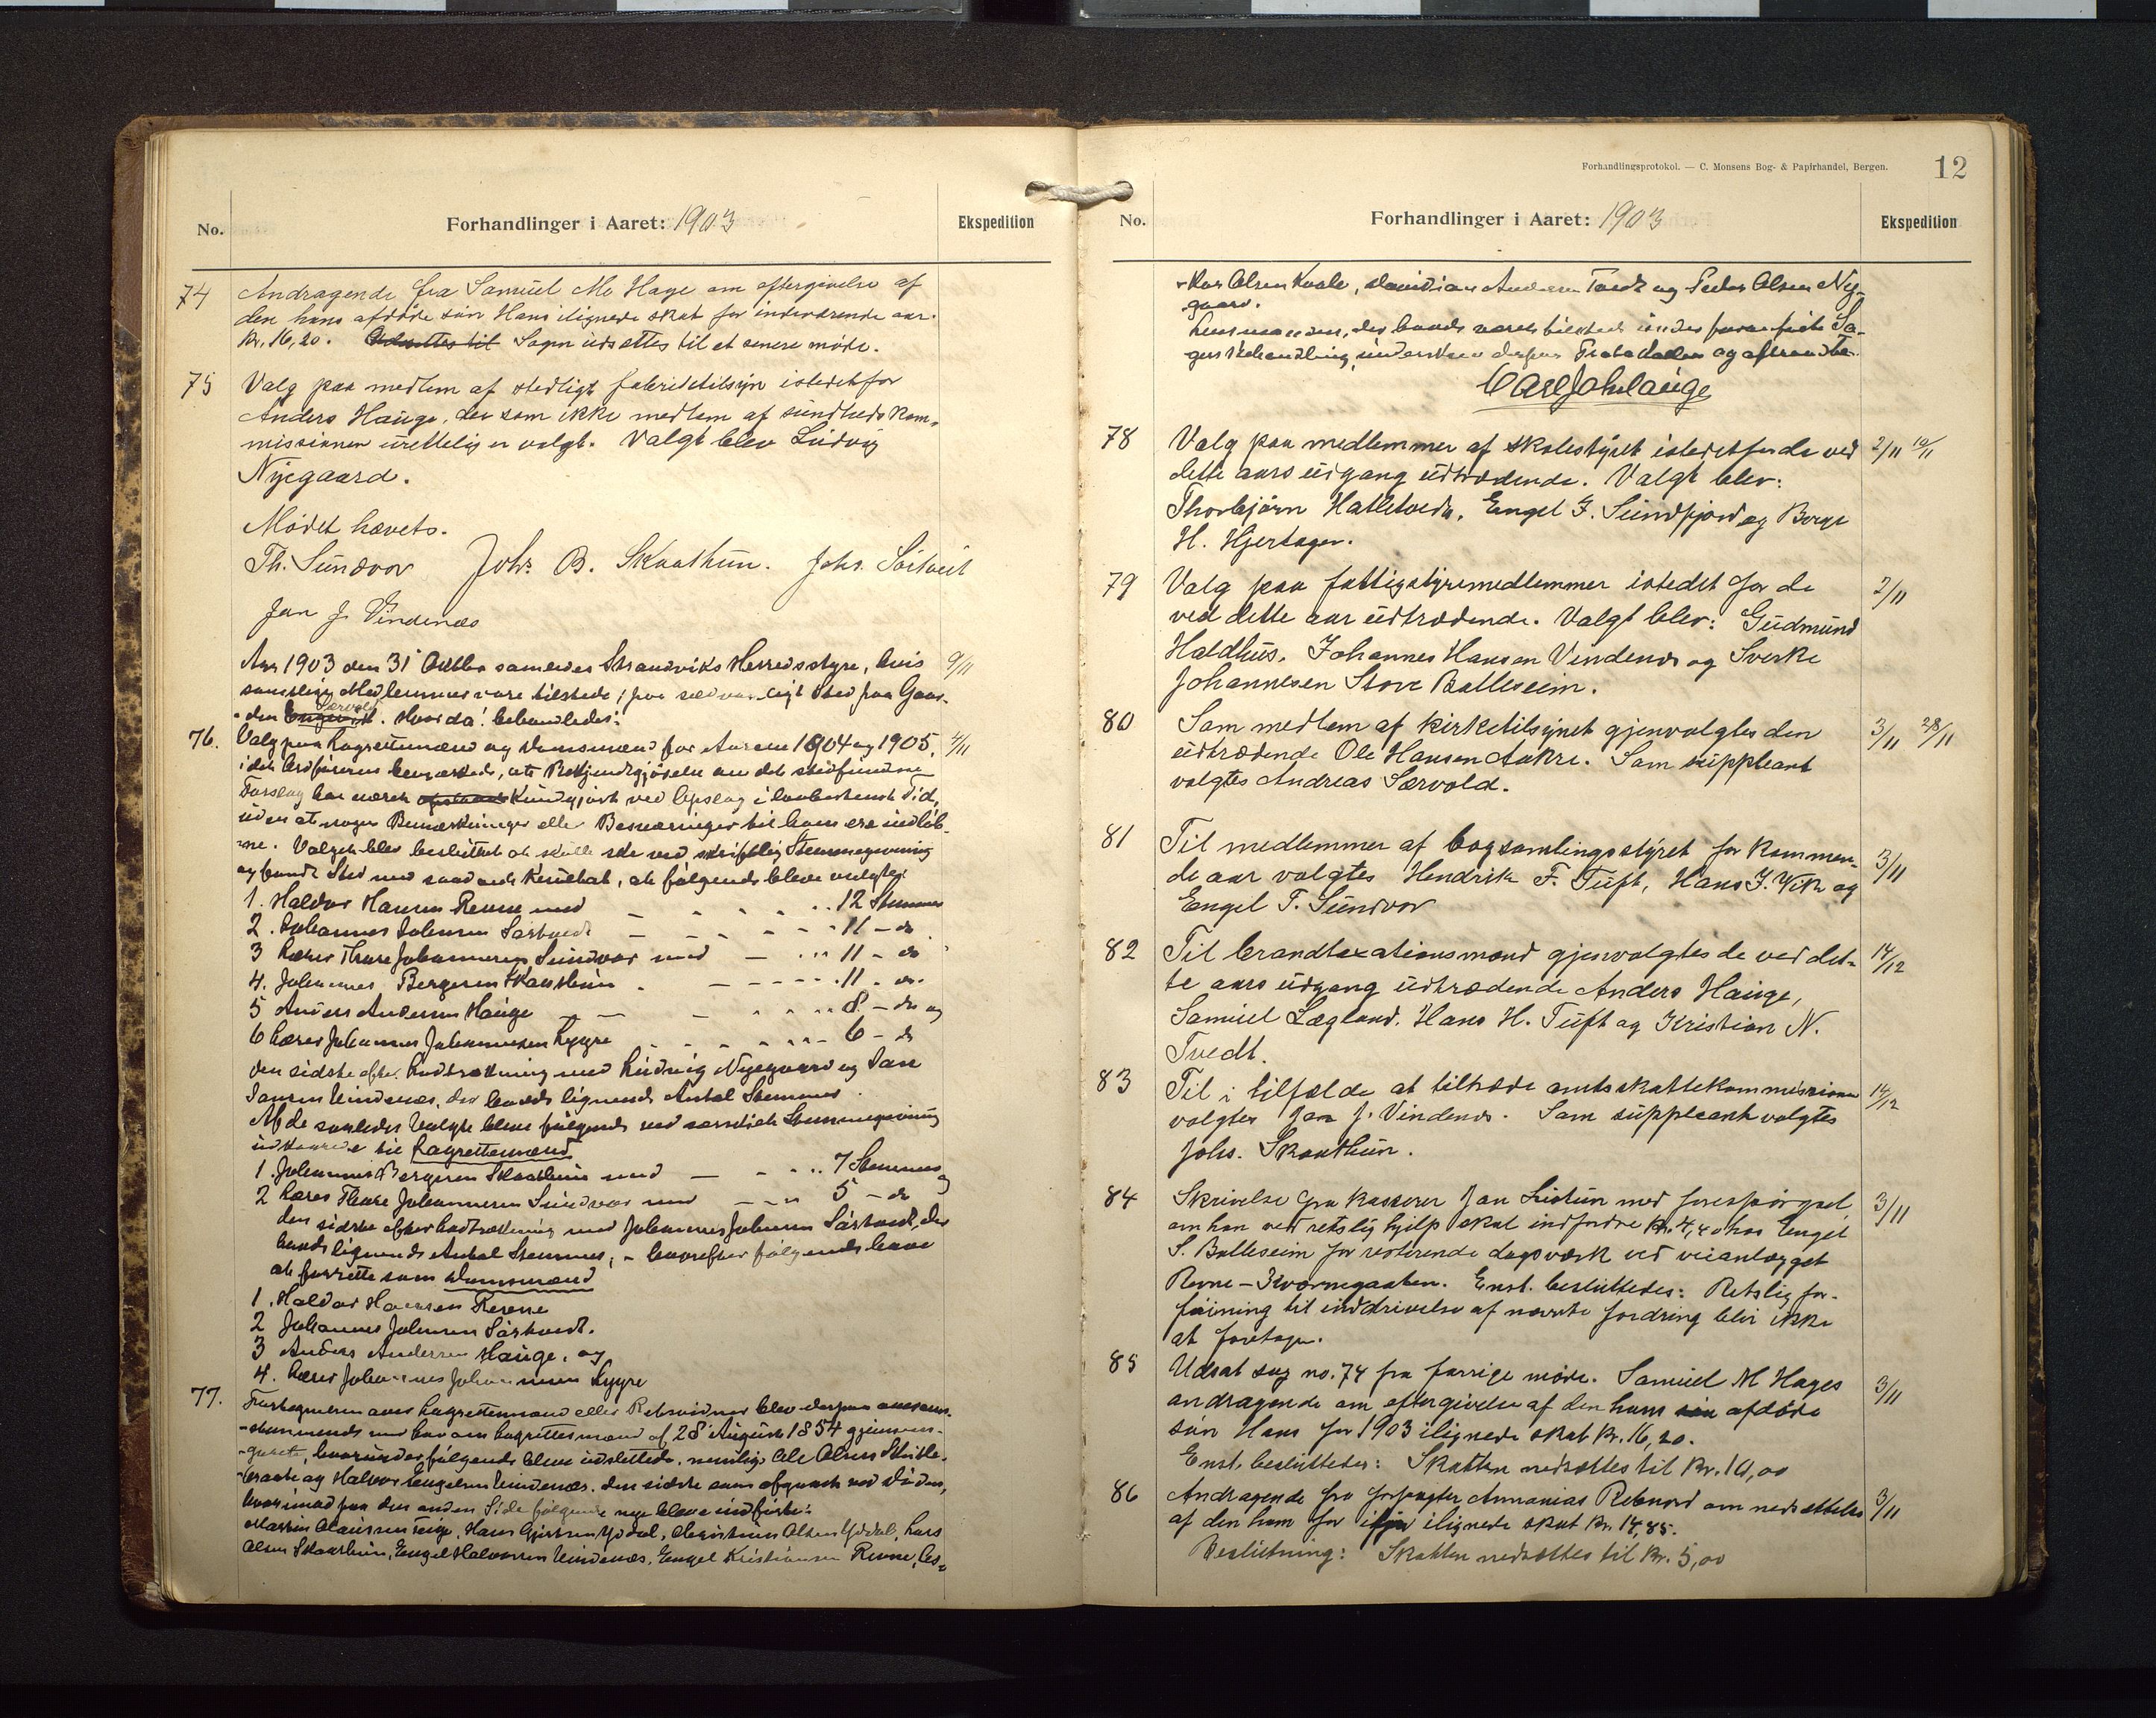 No.
Forhandlinger i Aaret: 1903
Ekspedition
74 Andragende fra Samuel M. Hage om eftergivelse af
den hans afdöde sön Hans ilignede skat for indeværende aar.
Kr. 16,20. Udsættes til Sagen udsættes til et senere möde.
75 Valg paa medlem af stedligt fabriktilsyn istedetfor
Anders Hauge, der som ikke medlem af sundhedskom-
missionen urettelig er valgt. Valgt blev Ludvig
Nygaard.
Mödet hævets.
Th. Sundvor Johs B. Skaathun. Johs. Sörtveit
Jan J. Vindenæs
Aar 1903 den 31 Oktbr samledes Strandviks Herredsstyre, hvis 9/11
samtlige Medlemmer vare tilstede, paa sædvanligt Sted paa Gaar-
den Engevik Særvold. Hvor da behandledes:
76. Valg paa Lagrettemænd og Domsmænd for Aarene 1904 og 1905, 4/11
idet Ordföreren bemærkede, at Bekjendtgjörelse om det stedfundne
Forslag har været Kundgjort ved Opslag i lovbestemt Tid,
uden at nogen Bemærkninger eller Besværinger til ham ere indlöb-
ne. Valget blev besluttet at skulle ske ved skriftlig Stemmegivning
og fandt Sted med saadant Resultat, at fölgende bleve valgte:
1. Haldor Hansen Revne med 12 Stemmer
2. Johannes Johnsen Sörtveit 11 - do
3 Lærer Thore Johannesen Sundvor med 11 - do
4. Johannes Bergesen Skaathun 11 - do.
5 Anders Andersen Hauge 8 - do og
6 Lærer Johannes Johannesen Lygre 6 - do
den sidste efter Lodtrækning med Ludvig Nygaard og Jan
Jansen Vindenæs, der havde lignende Antal Stemmer.
Af de saaledes Valgte bleve fölgende ved særskilt Stemmegivning
udkaarede til Lagrettemænd
1. Johannes Bergesen Skaathun med 7 Stemmer og
2 Lærer Thore Johannesen Sundvor med 5 - do
den sidste efter Lodtrækning med Johannes Johnsen Sörtveit, der
havde lignende Antal Stemmer, - hvorefter fölgende have
at forrette som Domsmænd
1. Haldor Hansen Revne
2 Johannes Johnsen Sörtveit.
3 Anders Andersen Hauge, og
4. Lærer Johannes Johannesen Lygre
77. Fortegnelsen over Lagrettemænd eller Retsvidner blev derpaa overens-
-stemmende med Lov om Lagrettesmænd af 28 August 1854 gjennem-
-gaaet, hvorunder fölgende bleve udslettede, nemlig: Ole Olsen
og Halvor Engelsen Vindenæs, den sidste som afgaaet ved Döden,
hvorimod paa den anden Side fölgende nye bleve indförte:
Claussen Teige, Hans Gjertsen Yddal, Christian Olsen Yddal, Lars
Olsen Skaathun, Engel Halvorsen Vindenæs, Engel Kristiansen Revne,
Forhandlingsprotokol. — C. Monsens Bog- & Papirhandel, Bergen.
12
No.
Forhandlinger i Aaret: 1903
Ekspedition
Olsen Kvale, Andersen Tvedt og Peder Olsen Ny-
gaard.
Lensmanden, der havde været tilstede under foranförte Sa-
gers Behandling, underskrev derpaa Protokollen og aftraadte.
Carl Joh Lauge
78 Valg paa medlemmer af skolestyret istedetfor de ved 2/11 10/11
dette aars udgang udtrædende. Valgt blev:
Thorbjörn Hatletvedt, Engel J. Sundfjord og Berge
H. Hjertager.
79 Valg paa fattigstyremedlemmer istedet for de 2/11
ved dette aar udtrædende. Valgt blev: Gudmund
Haldhus, Johannes Hansen Vindenæs og Sverke
Johannesen Store Batleseim.
80 Som medlem af kirketilsynet gjenvalgtes den 3/11 28/11
udtrædende Ole Hansen Aakre. Som suppleant
valgtes Andreas Særvold.
81 Til medlemmer af bogsamlingsstyret for kommen-
de aar valgtes Hendrik F. Tuft, Hans J. Vik og 3/11
Engel T. Sundvor
82 Til brandtaxationsmænd gjenvalgtes de ved det- 14/12
te aars udgang udtrædende Anders Hauge,
Samuel Lægland, Hans H. Tuft og Kristian N.
Tvedt.
83 Til i tilfælde at tiltræde amtsskattekommissionen 14/12
valgtes Jan J. Vindenæs. Som suppleant valgtes
Johs. Skaathun.
84 Skrivelse fra kasserer Jan Liotun med forespörgsel 3/11
om han ved retslig hjelp skal indfordre Kr. 4,40 hos Engel
S. Batleseim for resterende dagsværk ved veianlægget
Revne - Kvernegaaten. Enst. besluttedes: Retslig for-
föining til inddrivelse af nævnte fordring blir ikke
at foretage.
85 Udsat sag no. 74 fra forrige möde. Samuel M Hages 3/11
andragende om eftergivelse af den hans sön afdöde
sön Hans for 1903 ilignede skat Kr. 16,20.
Enst. besluttedes: Skatten nedsættes til Kr. 10,00
86 Andragende fra forpagter Annanias Rebnord om nedsættelse 3/11
af den ham for iaar ilignede skat Kr. 14,85.
Beslutning: Skatten nedsættes til Kr. 5,00